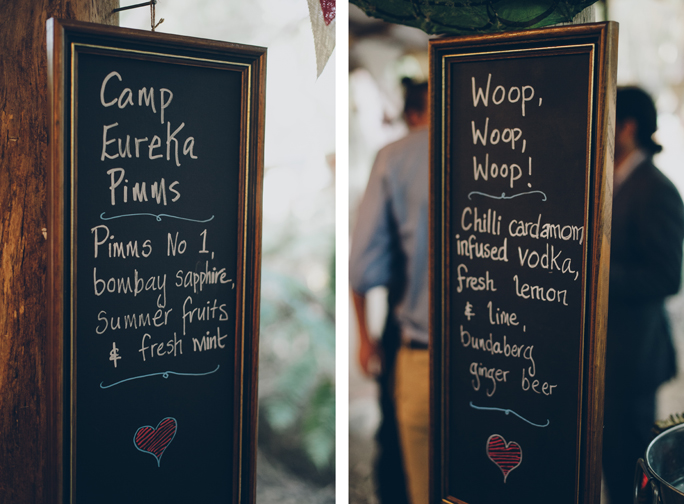 Camp
Eureka
Pimms
Pimms No 1,
bombay sapphire,
Summer fruits
& fresh mint
Woop,
Woop,
Woop!
Chilli cardamom
infused vodka,
fresh lemon
& lime,
bundaberg
ginger beer